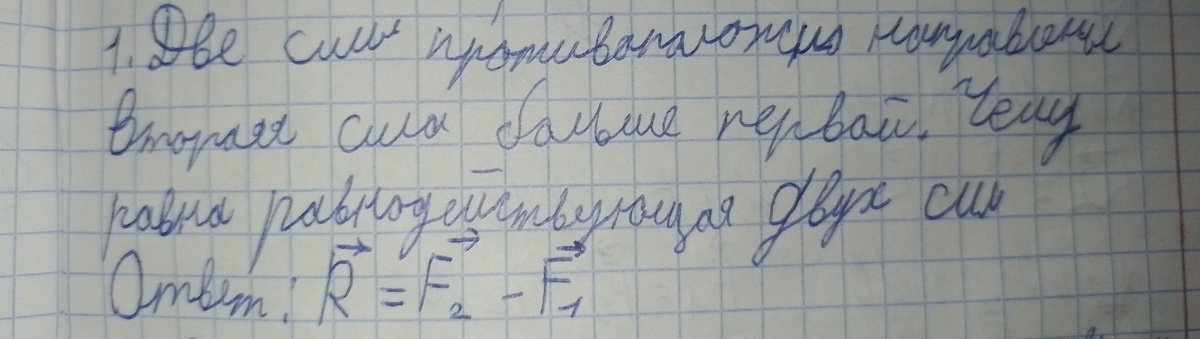 1. Две силы противоположно направлены
Вторая сила больше первой. Чему
равна равнодействующая двух сил
Ответ: R⃗ = F⃗₂ - F⃗₁